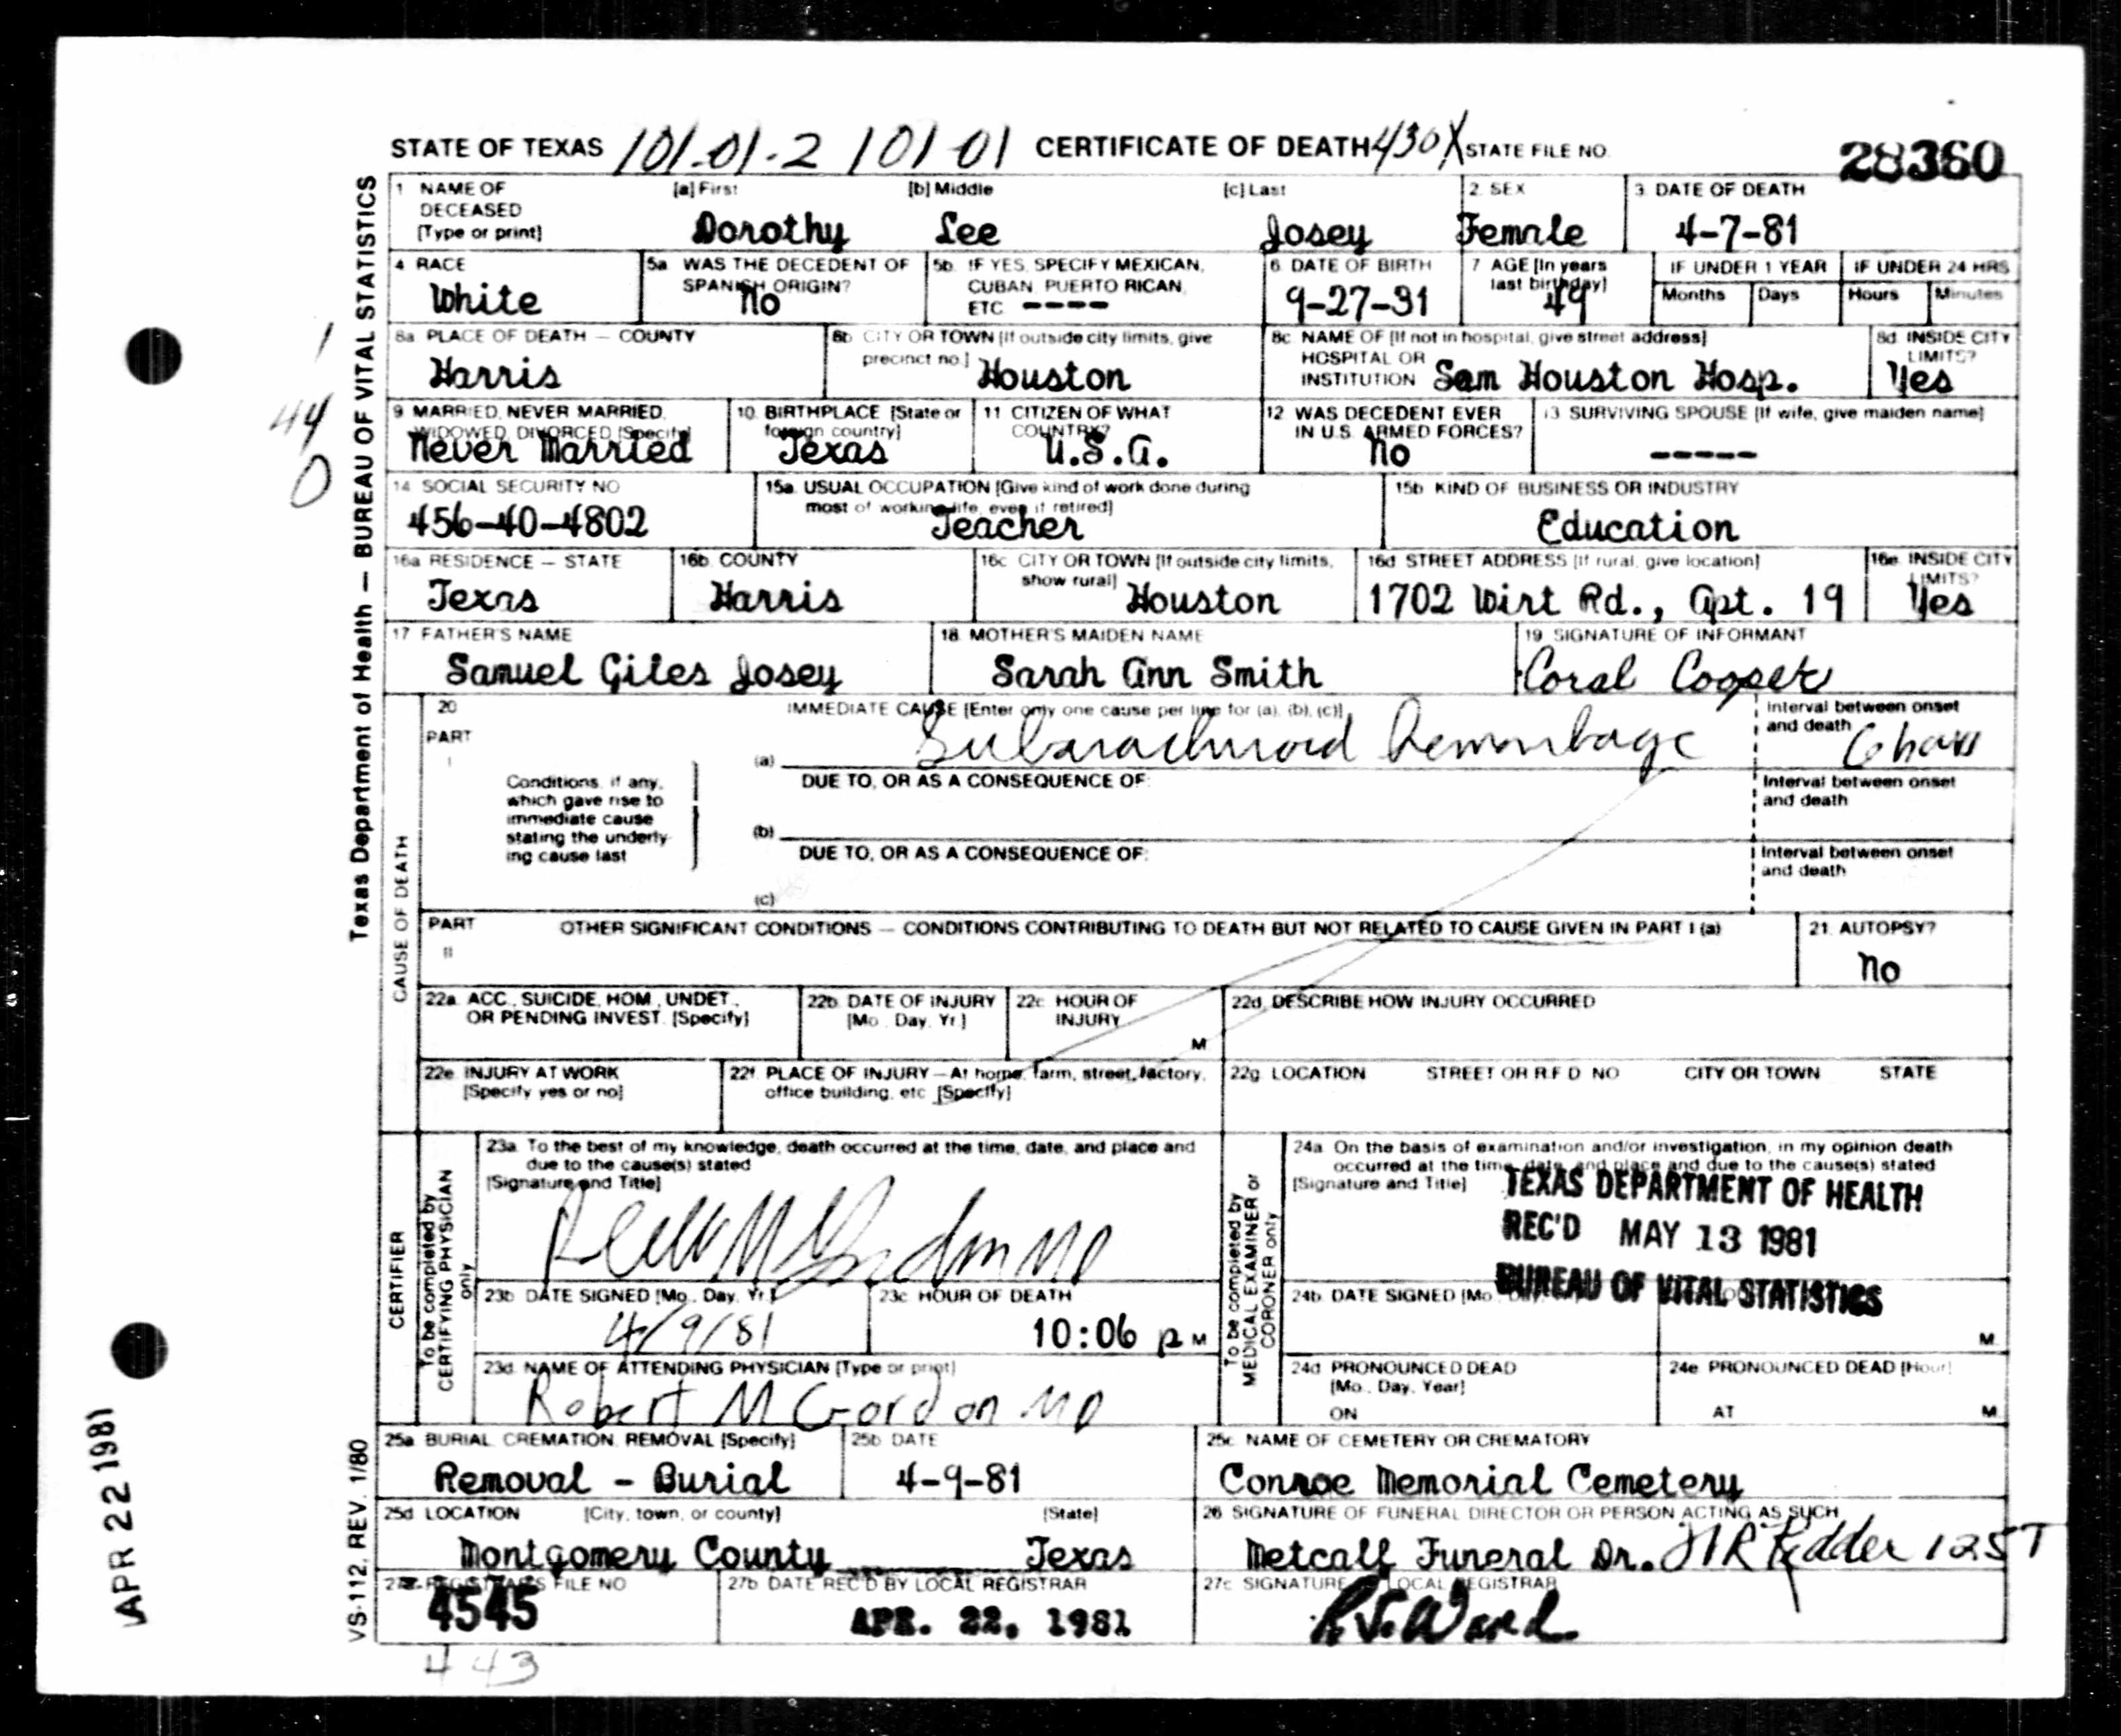 STATE OF TEXAS 101-01-2 101-01 CERTIFICATE OF DEATH 430X STATE FILE NO. 28360
Texas Department of Health — BUREAU OF VITAL STATISTICS
1 NAME OF DECEASED [Type or print] [a] First [b] Middle [c] Last 2. SEX 3. DATE OF DEATH
Dorothy Lee Josey Female 4-7-81
4 RACE 5a WAS THE DECEDENT OF SPANISH ORIGIN? 5b. IF YES, SPECIFY MEXICAN, CUBAN, PUERTO RICAN, ETC 6. DATE OF BIRTH 7 AGE [In years last birthday] IF UNDER 1 YEAR IF UNDER 24 HRS
Months Days Hours Minutes
White No ---- 9-27-31 49
8a PLACE OF DEATH — COUNTY 8b CITY OR TOWN [If outside city limits, give precinct no.] 8c NAME OF [If not in hospital, give street address] HOSPITAL OR INSTITUTION 8d. INSIDE CITY LIMITS?
Harris Houston Sam Houston Hosp. Yes
9 MARRIED, NEVER MARRIED, WIDOWED, DIVORCED [Specify] 10. BIRTHPLACE [State or foreign country] 11 CITIZEN OF WHAT COUNTRY? 12 WAS DECEDENT EVER IN U.S. ARMED FORCES? 13 SURVIVING SPOUSE [If wife, give maiden name]
Never Married Texas U.S.A. No -----
14 SOCIAL SECURITY NO 15a. USUAL OCCUPATION [Give kind of work done during most of working life, even if retired] 15b KIND OF BUSINESS OR INDUSTRY
456-40-4802 Teacher Education
16a RESIDENCE — STATE 16b. COUNTY 16c CITY OR TOWN [If outside city limits, show rural] 16d STREET ADDRESS [If rural, give location] 16e. INSIDE CITY LIMITS?
Texas Harris Houston 1702 Wirt Rd., Apt. 19 Yes
17 FATHER'S NAME 18. MOTHER'S MAIDEN NAME 19. SIGNATURE OF INFORMANT
Samuel Giles Josey Sarah Ann Smith Coral Cooper
1
44
0
CAUSE OF DEATH
20 IMMEDIATE CAUSE [Enter only one cause per line for (a), (b), (c)] Interval between onset and death
PART I
(a) Subarachnoid hemorrhage 6 hours
Conditions, if any, which gave rise to immediate cause stating the underlying cause last
DUE TO, OR AS A CONSEQUENCE OF: Interval between onset and death
(b)
DUE TO, OR AS A CONSEQUENCE OF: Interval between onset and death
(c)
PART II OTHER SIGNIFICANT CONDITIONS — CONDITIONS CONTRIBUTING TO DEATH BUT NOT RELATED TO CAUSE GIVEN IN PART I (a) 21. AUTOPSY?
No
22a. ACC., SUICIDE, HOM., UNDET., OR PENDING INVEST. [Specify] 22b. DATE OF INJURY [Mo., Day, Yr.] 22c. HOUR OF INJURY M 22d. DESCRIBE HOW INJURY OCCURRED
22e. INJURY AT WORK [Specify yes or no] 22f. PLACE OF INJURY—At home, farm, street, factory, office building, etc. [Specify] 22g. LOCATION STREET OR R.F.D. NO CITY OR TOWN STATE
CERTIFIER
To be completed by CERTIFYING PHYSICIAN only
23a. To the best of my knowledge, death occurred at the time, date, and place and due to the cause(s) stated
[Signature and Title]
23b DATE SIGNED [Mo., Day, Yr.] 23c HOUR OF DEATH
4/9/81 10:06 p M
23d. NAME OF ATTENDING PHYSICIAN [Type or print]
Robert M Gordon MD
To be completed by MEDICAL EXAMINER or CORONER only
24a On the basis of examination and/or investigation, in my opinion death occurred at the time, date, and place and due to the cause(s) stated
[Signature and Title]
TEXAS DEPARTMENT OF HEALTH
REC'D MAY 13 1981
BUREAU OF VITAL STATISTICS
24b. DATE SIGNED [Mo., Day M
24d PRONOUNCED DEAD [Mo., Day, Year] ON 24e. PRONOUNCED DEAD [Hour] AT M
25a. BURIAL, CREMATION, REMOVAL [Specify] 25b DATE 25c. NAME OF CEMETERY OR CREMATORY
Removal - Burial 4-9-81 Conroe Memorial Cemetery
25d LOCATION [City, town, or county] [State] 26 SIGNATURE OF FUNERAL DIRECTOR OR PERSON ACTING AS SUCH
Montgomery County Texas Metcalf Funeral Dr. 125T
27a REGISTRAR'S FILE NO 27b DATE REC'D BY LOCAL REGISTRAR 27c SIGNATURE LOCAL REGISTRAR
4545 APR. 22, 1981 Ward
443
APR 22 1981
VS-112, REV. 1/80